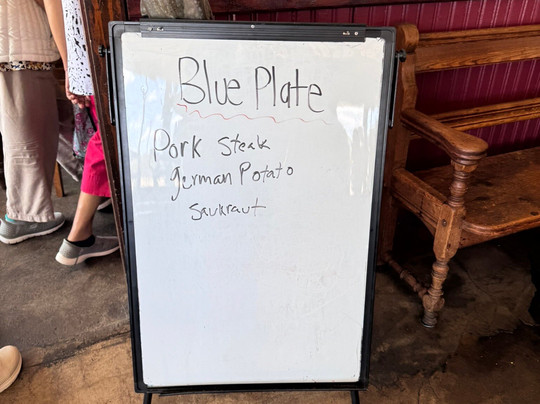 Blue Plate
Pork Steak
german Potato
Saukraut